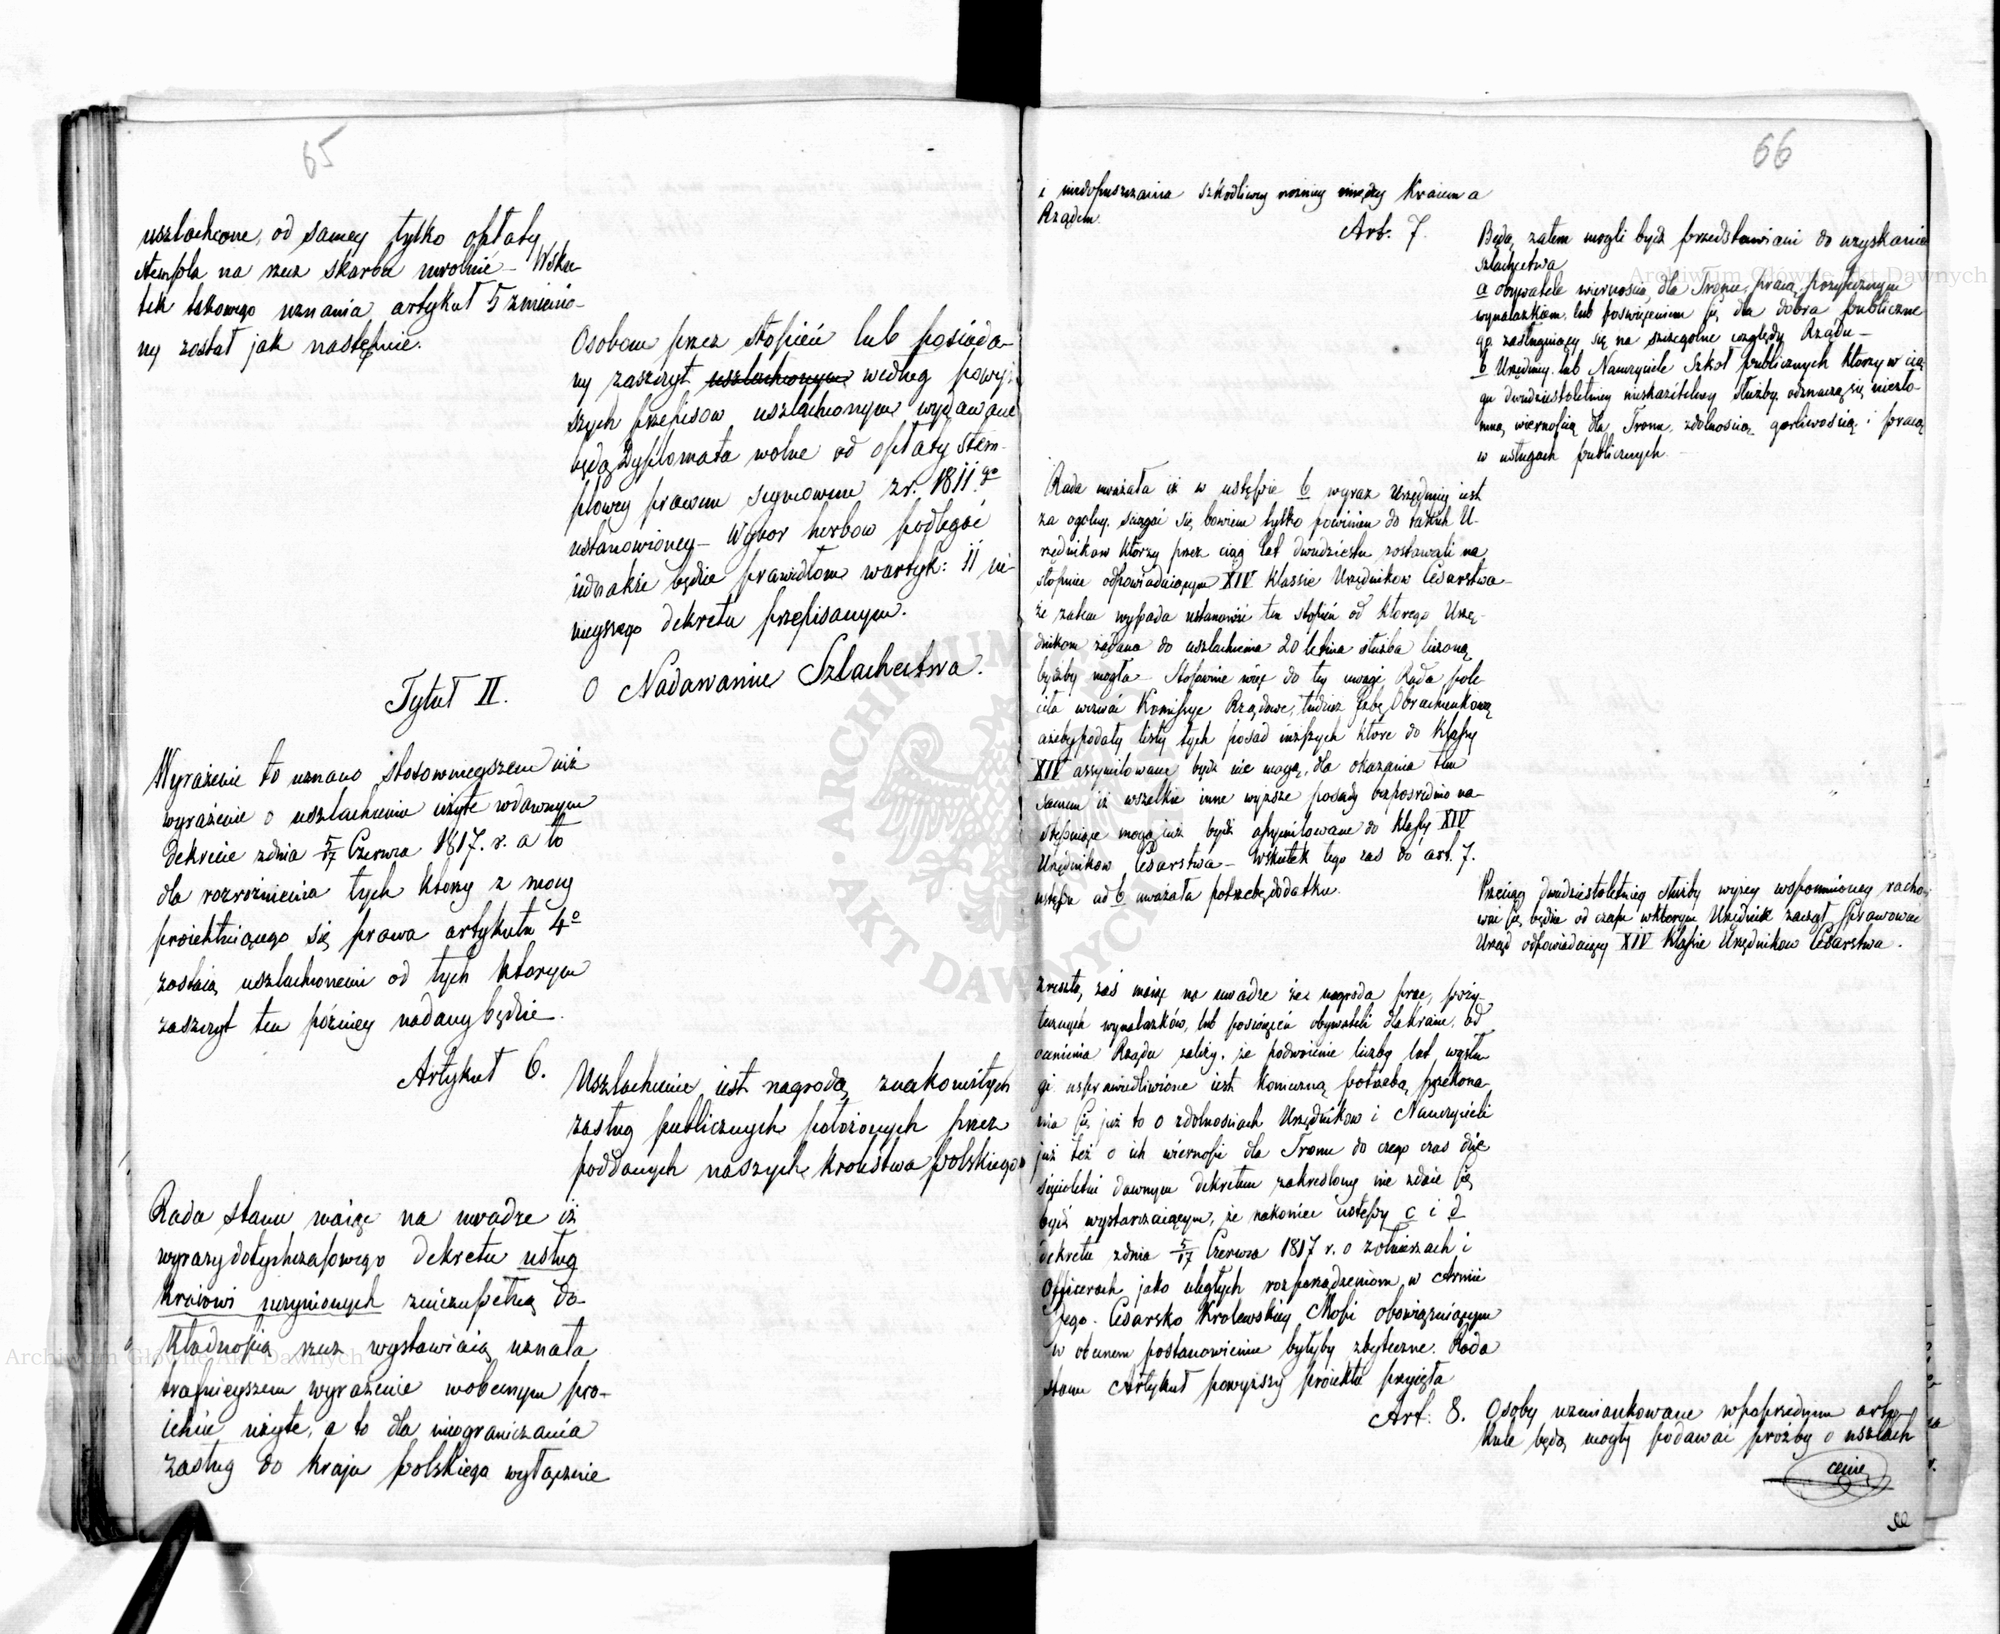 65
uszlachcone, od samey tylko opłaty
stempla na rzecz skarbu uwolnić – Wsku-
tek takowego uznania artykuł 5 zmienio-
ny został jak następnie.
Osobom przez stopień lub posiada-
ny zaszczyt uszlachconym według powyż-
szych przepisow uszlachconym wydawane
będą Dyplomata wolne od opłaty stem-
plowey prawem seymowem z r. 1811.go
ustanowioney – Wybor herbow podlegać
iednakże będzie prawidłom w artyk: 11 ni-
nieyszego dekretu przepisanym.
Tytuł II. O Nadawaniu Szlachectwa.
Wyrażenie to uznano stosownieyszem niż
wyrażenie o uszlachceniu użyte w dawnym
Dekrecie z dnia 5/17 Czerwca 1817. r. a to
dla rozróżnienia tych ktorzy z mocy
proiektuiącego się prawa artykułu 4º
zostaią uszlachconemi od tych ktorym
zaszczyt ten poźniey nadany będzie.
Artykuł 6. Uszlachcenie iest nagrodą znakomitych
zasług publicznych położonych przez
poddanych naszych krolestwa polskiego
Rada stanu maiąc na uwadze iż
wyrazy dotychczasowego dekretu usług
kraiowi uczynionych zupełną do-
kładnością rzecz wystawiaią uznała
trafnieyszem wyrażenie w obecnym pro-
iekcie użyte, a to dla nieograniczania
zasług do kraju polskiego wyłącznie
66
i niedopuszczania szkodliwey rożnicy między Kraiem a
Rządem.
Art. 7. Będą zatem mogli bydź przedstawiani do uzyskania
szlachectwa
a obywatele wiernością dla Tronu, pracą, pożytecznym
wynalazkiem, lub poswięceniem się dla dobra publiczne
go zasługuiący się na szczegolne względy Rządu –
b Urzędnicy lub Nauczyciele Szkoł publicznych ktorzy w cią
gu dwudziestoletniey nieskazitelney służby odznaczą się niezło-
mną wiernością dla Tronu, zdolnością, gorliwością i pracą
w usługach publicznych.
Rada uważała iż w ustępie b wyraz Urzędnicy iest
za ogolny, sciągać się bowiem tylko powinien do takich U-
rzędnikow ktorzy przez ciąg lat dwudziestu zostawali na
stopniu odpowiadaiącym XIV klassie Urzędnikow Cesarstwa –
że zatem wypada ustanowić ten stopień od ktorego Urzę-
dnikom żądana do uszlachcenia 20 letnia służba liczoną
bydźby mogła – Stosownie więc do tey uwagi Rada pole-
ciła wezwać Kommissye Rządowe, tudzież Izbę Obrachunkową
ażeby podały listy tych posad niższych ktore do klassy
XIV assymilowane bydź nie mogą, dla okazania tem
samem iż wszelkie inne wyższe posady bezposrednio na-
stępuiące mogą iuż bydź assymilowane do klassy XIV
Urzędnikow Cesarstwa – Wskutek tego zas do art. 7.
ustępu ad b uważała potrzebę dodatku.
Przeciąg dwudziestoletniey służby wyżey wspomnioney racho-
wać się będzie od czasu w ktorym Urzędnik zaczął sprawować
Urząd odpowiadaiący XIV klassie Urzędnikow Cesarstwa.
Zresztą zaś maiąc na uwadze że nagroda prac, poży-
tecznych wynalazków, lub poswięceń obywateli dla kraiu, od
ocenienia Rządu zależy, że podwoienie liczby lat wysłu
gi usprawiedliwione iest konieczną potrzebą przekona-
nia się już to o zdolnosciach Urzędnikow i Nauczycieli
już też o ich wiernosci dla Tronu do czego czas dzie
sięcioletni dawnym dekretem zakreślony nie zdaie się
bydź wystarczaiącym, że nakoniec ustępy c i d
dekretu z dnia 5/17 Czerwca 1817 r. o żołnierzach i
Officerach jako uległych rozporządzeniom w Armii
Jego Cesarsko Krolewskiey Mości obowiązuiącym
w obecnem postanowieniu byłyby zbyteczne. Rada
stanu Artykuł powyższy proiektu przyięła
Art. 8. Osoby wzmiankowane w poprzednim arty-
kule będą mogły podawać prożby o uszlach
cenie